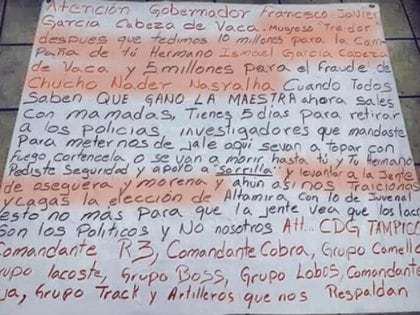 Atención Gobernador Francisco Javier
García Cabeza de Vaca. Mugroso Traidor
despues que tedimos 10 millones para la Cam
Paña de tú Hermano Ismael García Cabeza
de Vaca y 5 millones para el fraude de
Chucho Nader Nasralha Cuando Todos
Saben QUE GANO LA MAESTRA ahora sales
Con mamadas, Tienes 5 días para retirar
a los Policias, investigadores que mandaste
Para meternos de jale aqui sevan a topar con
fuego, cortencela o se van a morir hasta tú y Tu Hermano
Pediste Seguridad y apoyo a "sorrilla" y levantar a la Jente
de aseguera y morena y ahún asi nos Traicionas
y cagas la elección de Altamira con lo de Juvenal
esto no más para que la jente vea que los
Son los Politicos y No nosotros Att... CDG TAMPICO
Comandante R3, Comandante Cobra, Grupo Camello
Grupo lacoste, Grupo Boss, Grupo Lobos, Comandante
Grupo Track y Artilleros que nos Respaldan